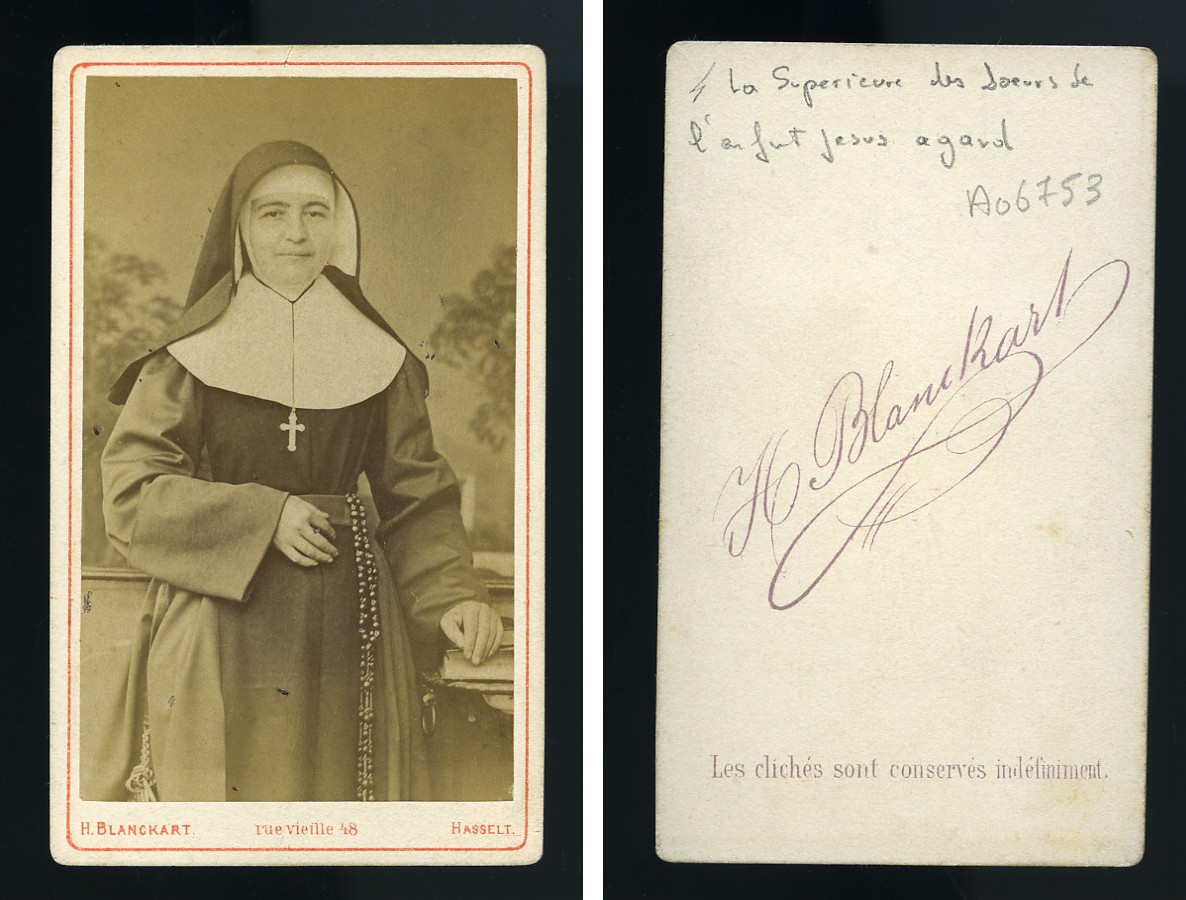 H. BLANCKART. rue vieille 48 HASSELT.
La Superieure des soeurs de
l'enfant jesus a gand
A06753
H Blanckart
Les clichés sont conservés indéfiniment.